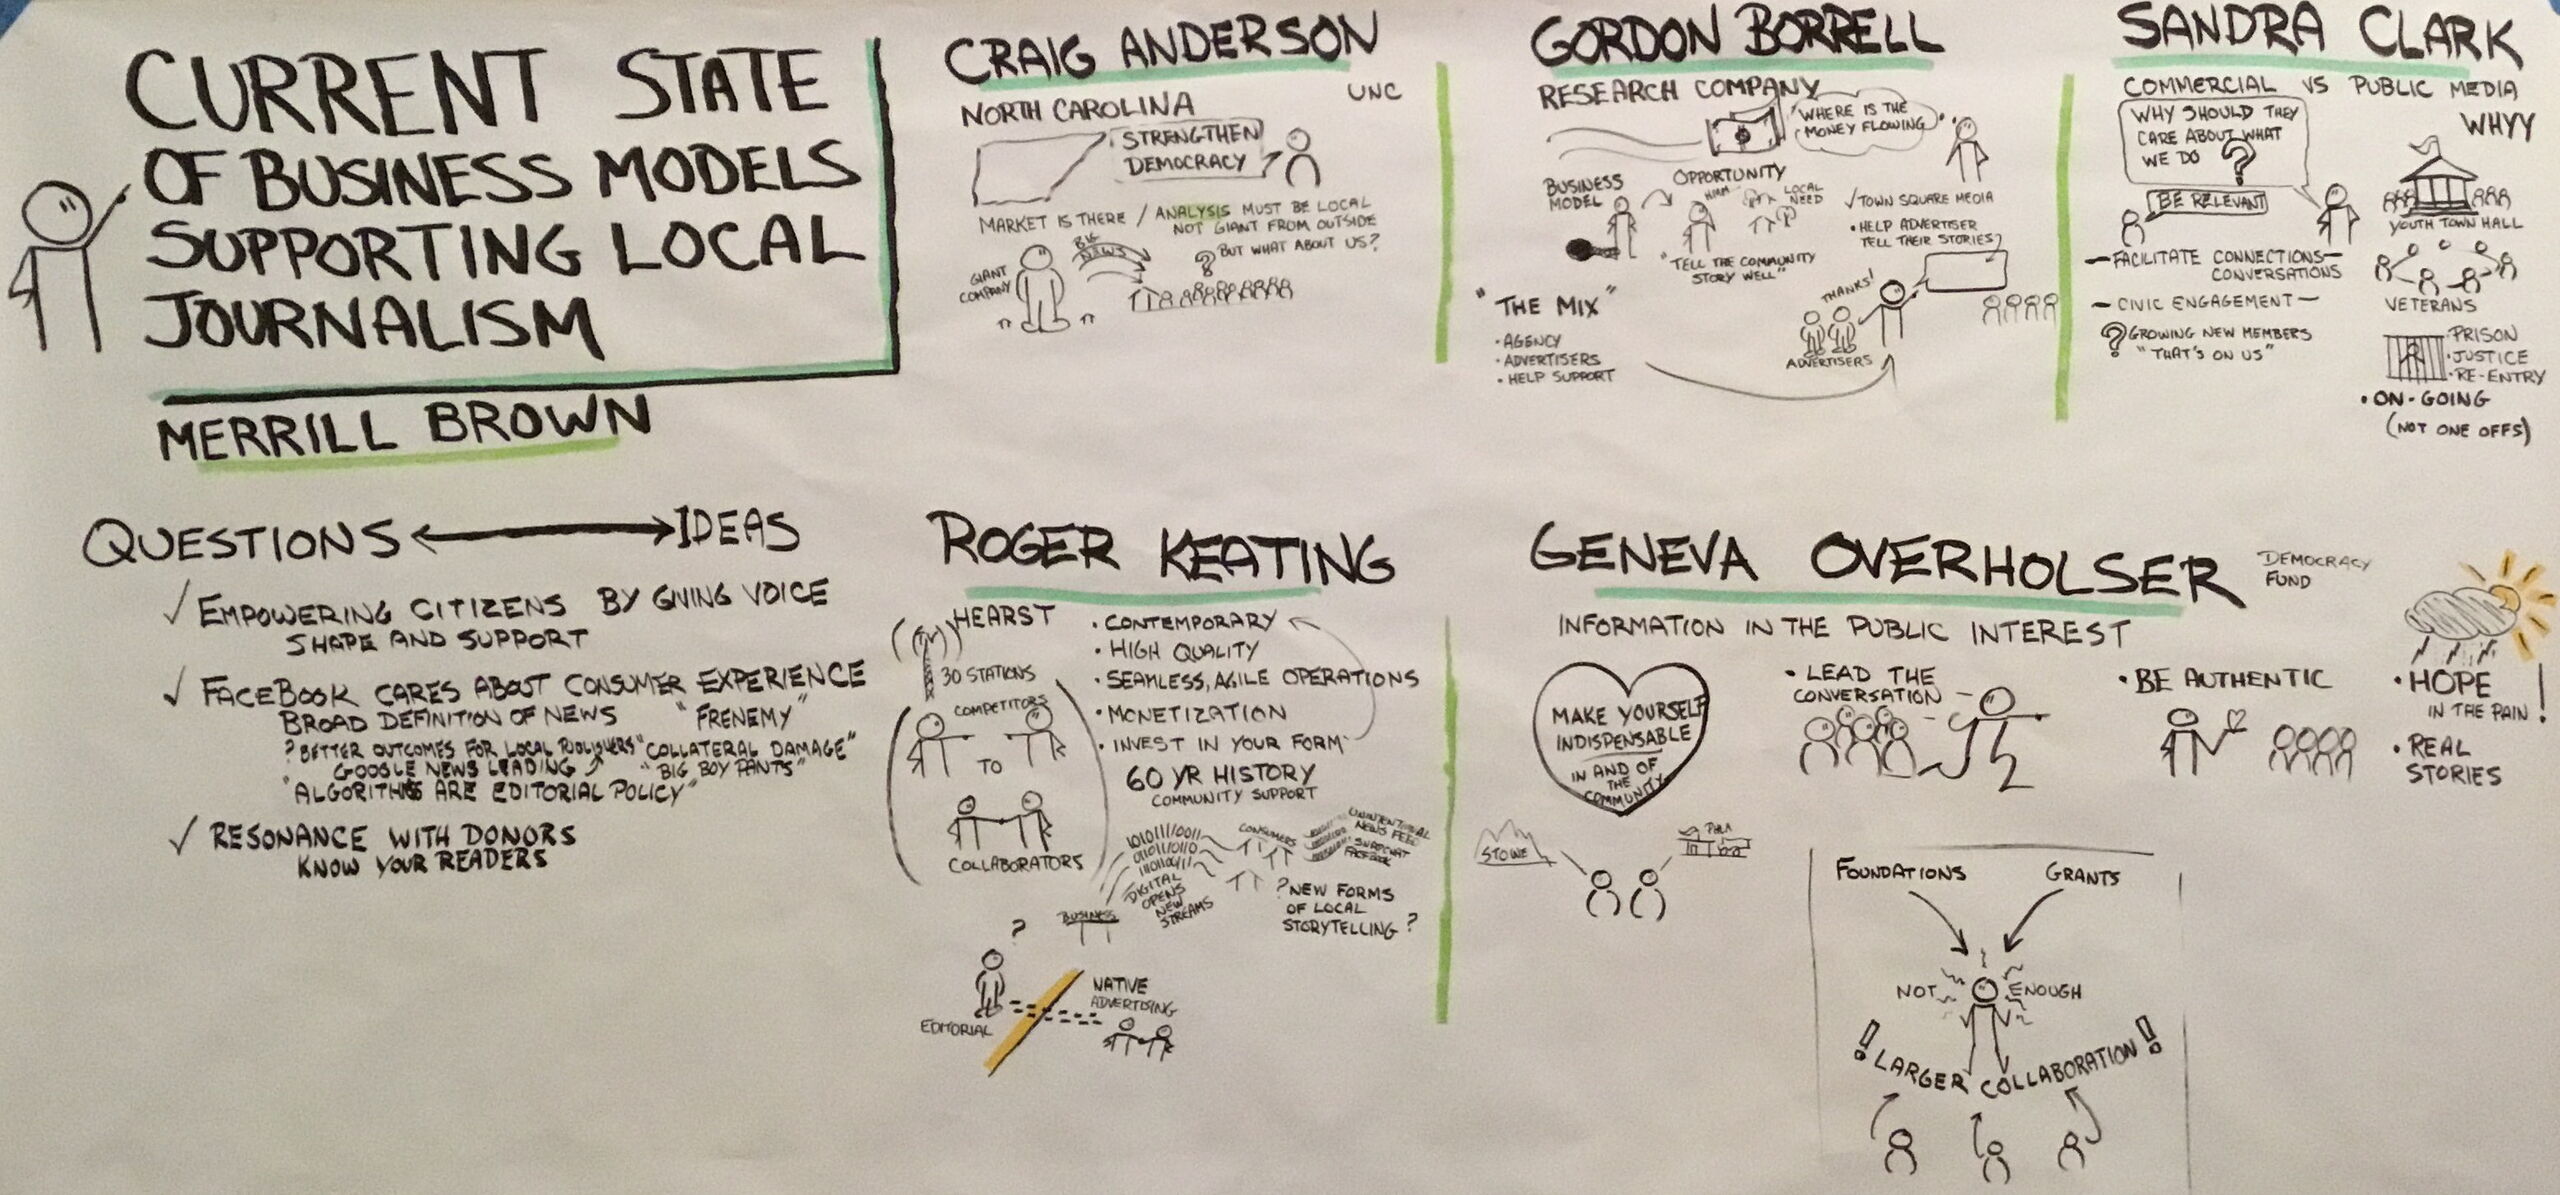 CURRENT STATE
OF BUSINESS MODELS
SUPPORTING LOCAL
JOURNALISM
MERRILL BROWN
CRAIG ANDERSON
NORTH CAROLINA
UNC
STRENGTHEN
DEMOCRACY
MARKET IS THERE / ANALYSIS MUST BE LOCAL
NOT GIANT FROM OUTSIDE
GIANT
COMPANY
BIG
NEWS
? BUT WHAT ABOUT US?
GORDON BORRELL
RESEARCH COMPANY
WHERE IS THE
MONEY FLOWING
BUSINESS
MODEL
OPPORTUNITY
HMM
LOCAL
NEED
"TELL THE COMMUNITY
STORY WELL"
✓ TOWN SQUARE MEDIA
• HELP ADVERTISER
TELL THEIR STORIES
"THE MIX"
• AGENCY
• ADVERTISERS
• HELP SUPPORT
THANKS!
ADVERTISERS
SANDRA CLARK
COMMERCIAL VS PUBLIC MEDIA
WHYY
WHY SHOULD THEY
CARE ABOUT WHAT
WE DO ?
BE RELEVANT
— FACILITATE CONNECTIONS —
CONVERSATIONS
— CIVIC ENGAGEMENT —
? GROWING NEW MEMBERS
"THAT'S ON US"
YOUTH TOWN HALL
VETERANS
• PRISON
• JUSTICE
• RE-ENTRY
• ON-GOING
(NOT ONE OFFS)
QUESTIONS IDEAS
✓ EMPOWERING CITIZENS BY GIVING VOICE
SHAPE AND SUPPORT
✓ FACEBOOK CARES ABOUT CONSUMER EXPERIENCE
BROAD DEFINITION OF NEWS "FRENEMY"
? BETTER OUTCOMES FOR LOCAL PUBLISHERS "COLLATERAL DAMAGE"
GOOGLE NEWS LEADING "BIG BOY PANTS"
"ALGORITHMS ARE EDITORIAL POLICY"
✓ RESONANCE WITH DONORS
KNOW YOUR READERS
ROGER KEATING
HEARST
30 STATIONS
COMPETITORS
TO
COLLABORATORS
• CONTEMPORARY
• HIGH QUALITY
• SEAMLESS, AGILE OPERATIONS
• MONETIZATION
• INVEST IN YOUR FORM
60 YR HISTORY
COMMUNITY SUPPORT
DIGITAL
OPENS
NEW
STREAMS
CONSUMERS
UNINTENTIONAL
NEWS FEED
SNAPCHAT
FACEBOOK
BUSINESS
? NEW FORMS
OF LOCAL
STORYTELLING ?
?
EDITORIAL
NATIVE
ADVERTISING
GENEVA OVERHOLSER
DEMOCRACY
FUND
INFORMATION IN THE PUBLIC INTEREST
MAKE YOURSELF
INDISPENSABLE
IN AND OF
THE
COMMUNITY
• LEAD THE
CONVERSATION
• BE AUTHENTIC
• HOPE
IN THE PAIN !
• REAL
STORIES
STOWE
FOUNDATIONS
GRANTS
NOT ENOUGH
! LARGER COLLABORATION !